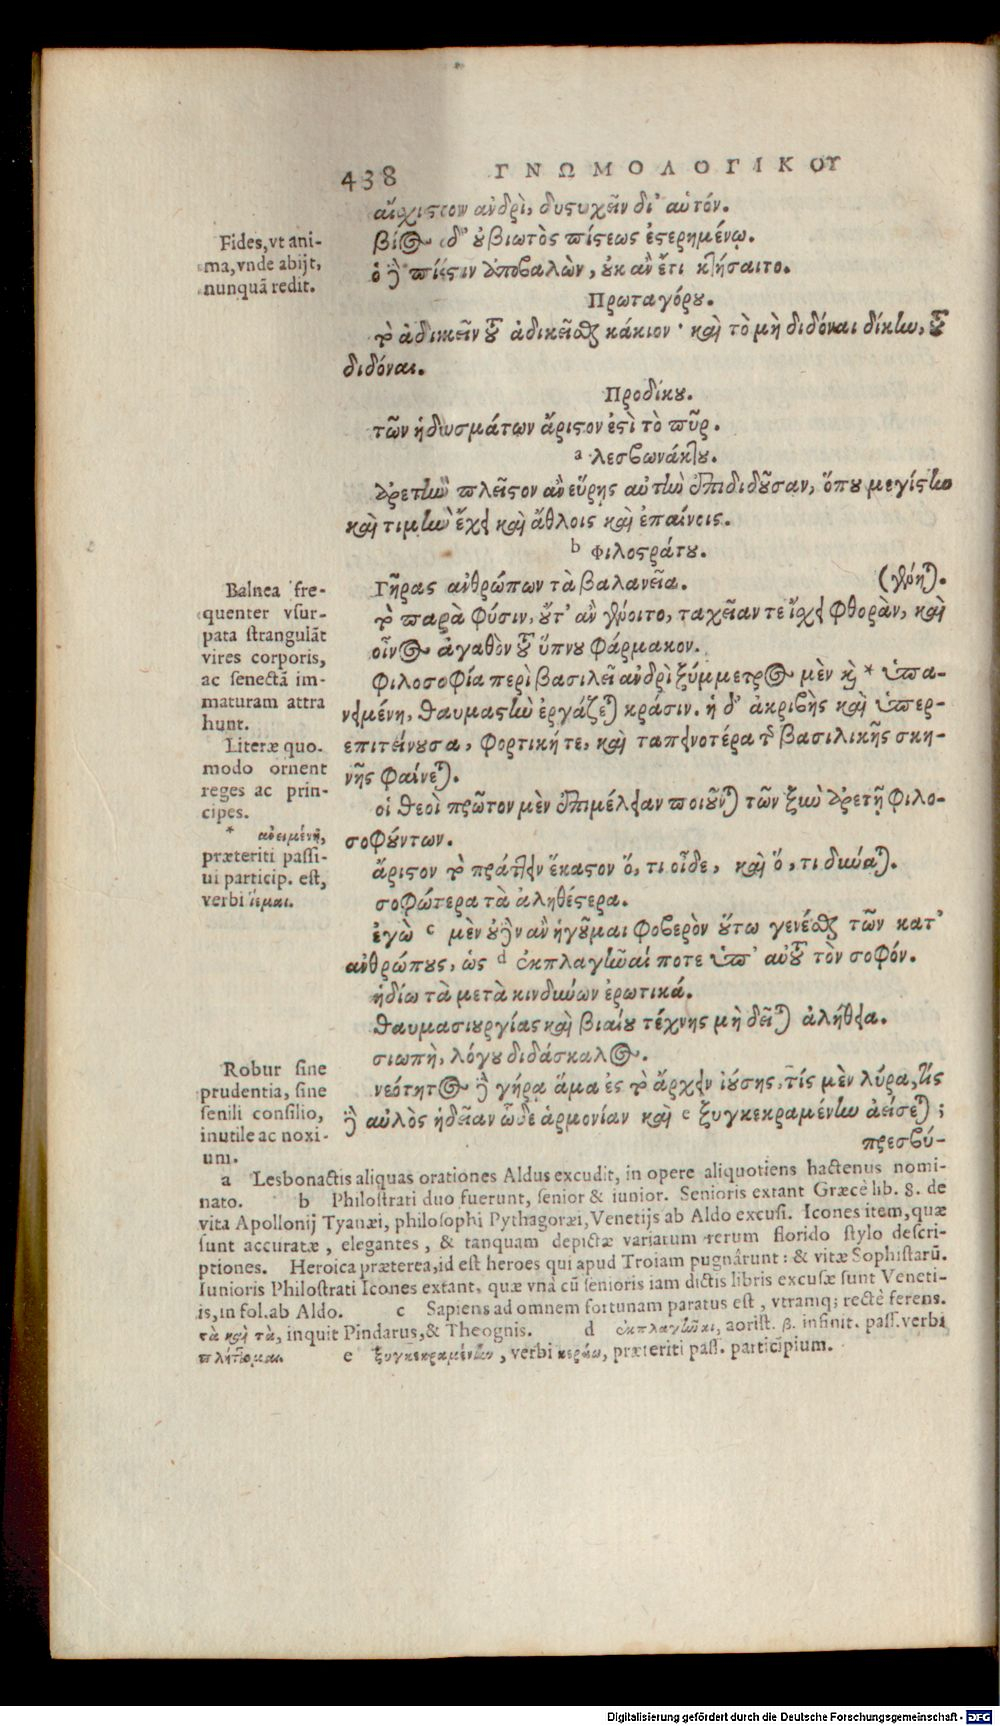 438 ΓΝΩΜΟΛΟΓΙΚΟΥ
αἴσχιστον ἀνδρὶ, δυστυχεῖν δι’ αὑτόν.
βίος δ’ οὐ βιωτὸς πίστεως ἐστερημένῳ.
ὁ γὰρ πίστιν ἀποβαλὼν, οὐκ ἂν ἔτι κτήσαιτο.
Πρωταγόρου.
τὸ ἀδικεῖν τοῦ ἀδικεῖσθαι κάκιον· καὶ τὸ μὴ διδόναι δίκην, τοῦ
διδόναι.
Προδίκου.
τῶν ἡδυσμάτων ἄριστον ἐστὶ τὸ πῦρ.
a Λεσβωνάκτου.
ἀρετὴν πλεῖστον ἂν εὕρῃς αὐτὴν ἐπιδιδοῦσαν, ὅπου μεγίστην
καὶ τιμὴν ἔχει καὶ ἄθλοις καὶ ἐπαίνοις.
b Φιλοστράτου.
Γῆρας ἀνθρώπων τὰ βαλανεῖα.
τὸ παρὰ φύσιν, οὔτ’ ἂν γένοιτο, ταχεῖαν τε ἴσχει φθορὰν, καὶ (γένηται.
οἶνος ἀγαθὸν τοῦ ὕπνου φάρμακον.
φιλοσοφία περὶ βασιλεῖ ἀνδρὶ ξύμμετρος μὲν καὶ * ὑπα-
νειμένη, θαυμαστὴν ἐργάζεται κράσιν. ἡ δ’ ἀκριβὴς καὶ ὑπερ-
επιτείνουσα, φορτική τε, καὶ ταπεινοτέρα τῆς βασιλικῆς σκη-
νῆς φαίνεται.
οἱ θεοὶ πρῶτον μὲν ἐπιμέλειαν ποιοῦνται τῶν ξὺν ἀρετῇ φιλο-
σοφούντων.
ἄριστον τὸ πράττειν ἕκαστον ὅ, τι οἶδε, καὶ ὅ, τι δύναται.
σοφώτερα τὰ ἀληθέστερα.
ἐγὼ c μὲν οὐδὲν ἂν ἡγοῦμαι φοβερὸν οὕτω γενέσθαι τῶν κατ’
ἀνθρώπους, ὡς d ἐκπλαγῆναί ποτε ὑπ’ αὐτοῦ τὸν σοφόν.
ἡδίω τὰ μετὰ κινδύνων ἐρωτικά.
θαυμασιουργίας καὶ βιαίου τέχνης μὴ δεῖται ἀλήθεια.
σιωπὴ, λόγου διδάσκαλος.
νεότητος δὲ γήρᾳ ἅμα ἐς τὸ ἄρχειν ἰούσης, τίς μὲν λύρα, τίς
δὲ αὐλὸς ἡδεῖαν ὧδε ἁρμονίαν καὶ e ξυγκεκραμένην ᾄσεται;
πρεσβύ-
Fides, vt ani-
ma, vnde abijt,
nunquā redit.
Balnea fre-
quenter vsur-
pata strangulāt
vires corporis,
ac senectā im-
maturam attra
hunt.
Literæ quo-
modo ornent
reges ac prin-
cipes.
* ἀνειμένη,
præteriti passi-
ui particip. est,
verbi ἵεμαι.
Robur sine
prudentia, sine
senili consilio,
inutile ac noxi-
um.
a Lesbonactis aliquas orationes Aldus excudit, in opere aliquotiens hactenus nomi-
nato. b Philostrati duo fuerunt, senior & iunior. Senioris extant Græcè lib. 8. de
vita Apollonij Tyanæi, philosophi Pythagoræi, Venetijs ab Aldo excusi. Icones item, quæ
sunt accuratæ, elegantes, & tanquam depictæ variatum rerum florido stylo descri-
ptiones. Heroica præterea, id est heroes qui apud Troiam pugnârunt: & vitæ Sophistarū.
Iunioris Philostrati Icones extant, quæ vnà cū senioris iam dictis libris excusæ sunt Veneti-
is, in fol. ab Aldo. c Sapiens ad omnem fortunam paratus est, vtramq; rectè ferens.
τὰ καὶ τὰ, inquit Pindarus, & Theognis. d ἐκπλαγῆναι, aorist. β. infinit. pass. verbi
πλήττομαι. e ξυγκεκραμένην, verbi κεράω, præteriti pass. participium.
Digitalisierung gefördert durch die Deutsche Forschungsgemeinschaft - DFG